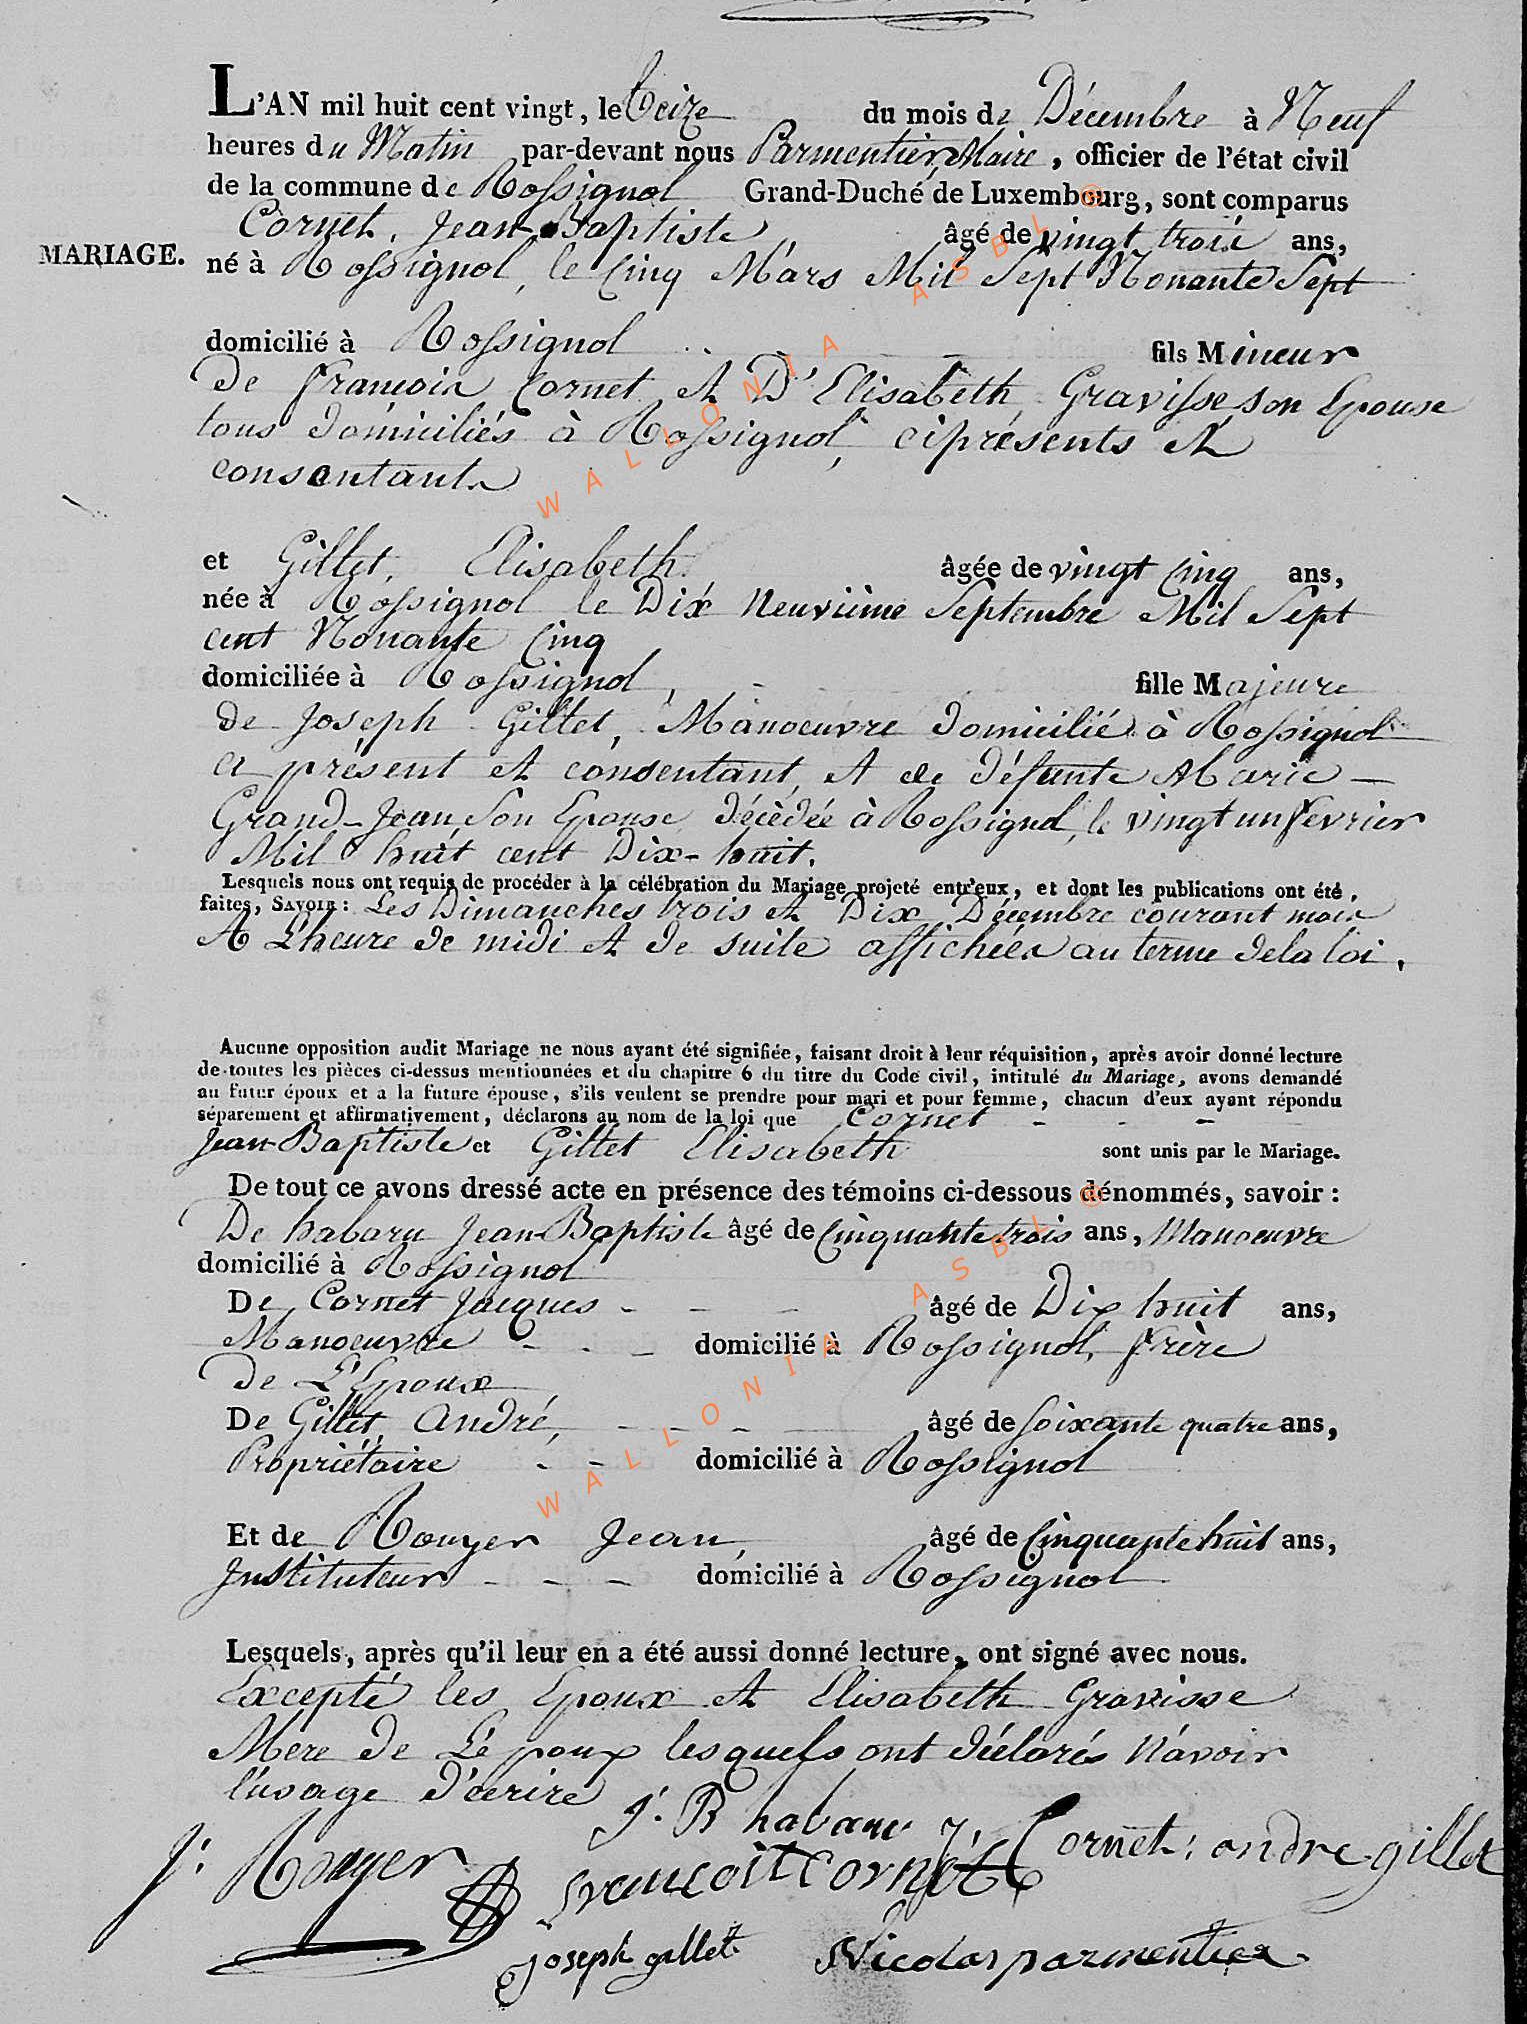 L'AN mil huit cent vingt, le treize du mois de Décembre à Neuf
heures du Matin par-devant nous Parmentier Maire, officier de l'état civil
de la commune de Rossignol Grand-Duché de Luxembourg, sont comparus
Cornet, Jean-Baptiste, âgé de vingt trois ans,
MARIAGE. né à Rossignol, le Cinq Mars Mil Sept Nonante Sept
domicilié à Rossignol fils Mineur
De François Cornet et D'Elisabeth Gravisse son Epouse
tous domiciliés à Rossignol, ciprésents et
consentants
et Gillet, Elisabeth. âgée de vingt cinq ans,
née à Rossignol le Dix Neuvième Septembre Mil Sept
cent Nonante Cinq
domiciliée à Rossignol, fille Majeure
de Joseph Gillet, Manoeuvre domicilié à Rossignol
ci présent et consentant et de défunte Marie
Grand-Jean, Son Epouse décédée à Rossignol, le vingt un février
Mil huit cent Dix-huit.
Lesquels nous ont requis de procéder à la célébration du Mariage projeté entr'eux, et dont les publications ont été
faites, SAVOIR: Les Dimanches trois et Dix Décembre courant mois
A L'heure de midi et de suite affichées au terme dela loi.
Aucune opposition audit Mariage ne nous ayant été signifiée, faisant droit à leur réquisition, après avoir donné lecture
de toutes les pièces ci-dessus mentionnées et du chapitre 6 du titre du Code civil, intitulé du Mariage, avons demandé
au futur époux et a la future épouse, s'ils veulent se prendre pour mari et pour femme, chacun d'eux ayant répondu
séparement et affirmativement, déclarons au nom de la loi que Cornet
Jean-Baptiste et Gillet Elisabeth sont unis par le Mariage.
De tout ce avons dressé acte en présence des témoins ci-dessous dénommés, savoir :
De habaru Jean-Baptiste âgé de Cinquante trois ans, Manoeuvre
domicilié à Rossignol
De Cornet Jacques âgé de Dix huit ans,
Manoeuvre domicilié à Rossignol, frère
de L'Epoux
De Gillet André, âgé de Soixante quatre ans,
Propriétaire domicilié à Rossignol
Et de Rouyer Jean, âgé de Cinquante huit ans,
Instituteur domicilié à Rossignol
Lesquels, après qu'il leur en a été aussi donné lecture, ont signé avec nous.
Excepté les Epoux et Elisabeth Gravisse
Mère de L'époux lesquels ont déclarés n'avoir
l'usage d'écrire
J. B habaru J. Cornet. andre gillet
J. Rouyer François Cornet
joseph gillet Nicolas parmentier
WALLONIA ASBL ®
WALLONIA ASBL ®